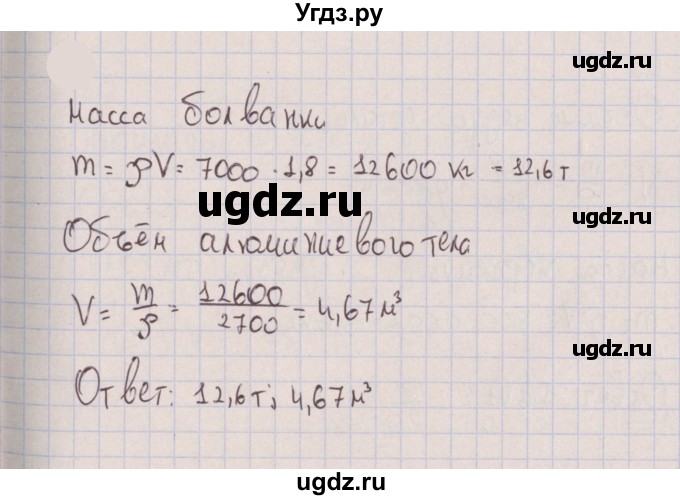 Угдз.ру
ugdz.ru
Масса болванки
m = ρV = 7000 · 1,8 = 12600 кг = 12,6 т
ugdz.ru
ugdz.ru
Объём алюминиевого тела
V = m/ρ = 12600/2700 = 4,67 м³
ugdz.ru
Ответ: 12,6 т; 4,67 м³
ugdz.ru
ugdz.ru